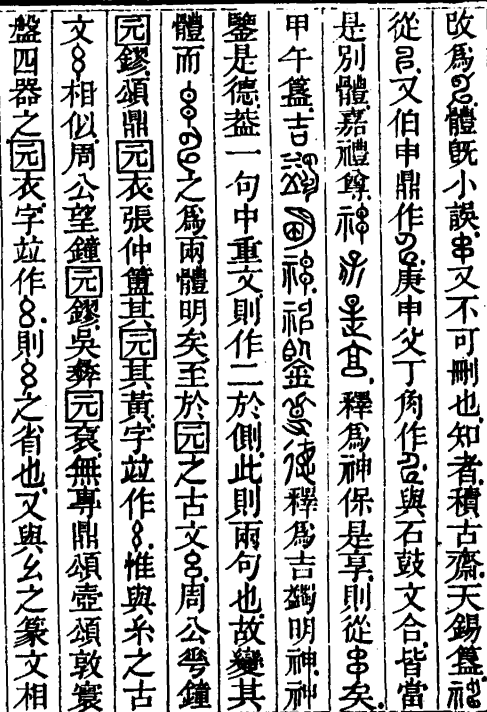 改爲體旣小誤串又不可刪也知者積古齋天錫簋
從又伯申鼎作庚申父丁角作與石鼓文合皆當
是別體嘉禮尊釋爲神保是享則從串矣
甲午簋吉釋爲吉蠲明神神
鑒是德葢一句中重文則作二於側此則兩句也故變其
體而之爲兩體明矣至於元之古文周公𠌶鐘
元鏐頌鼎元衣張仲簠其元其黃字竝作惟與糸之古
文相似周公望鐘元鏐吳彝元袞無專鼎頌壺頌敦寰
盤四器之元衣字竝作則之省也又與幺之篆文相